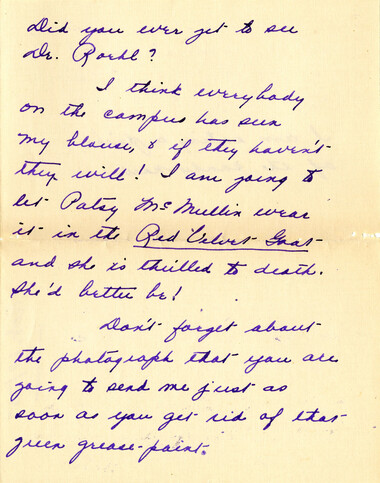 Did you ever get to see
Dr. Roehl?
I think everybody
on the campus has seen
my blouse, & if they haven't
they will! I am going to
let Patsy McMullin wear
it in the Red Velvet Goat
and she is thrilled to death.
She'd better be!
Don't forget about
the photograph that you are
going to send me just as
soon as you get rid of that
green grease-paint.